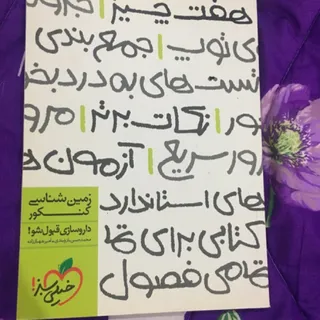 هفت چیز | جبرو
ی توپ | جمع بندی
تست های به درد بخو
نور | نکات برتر | مرو
رور سریع | آزمون ه
های استاندارد
کتابی برای تما
تمامی فصول
زمین شناسی
کنکور
داروسازی قبول شو!
خیلی سبز!